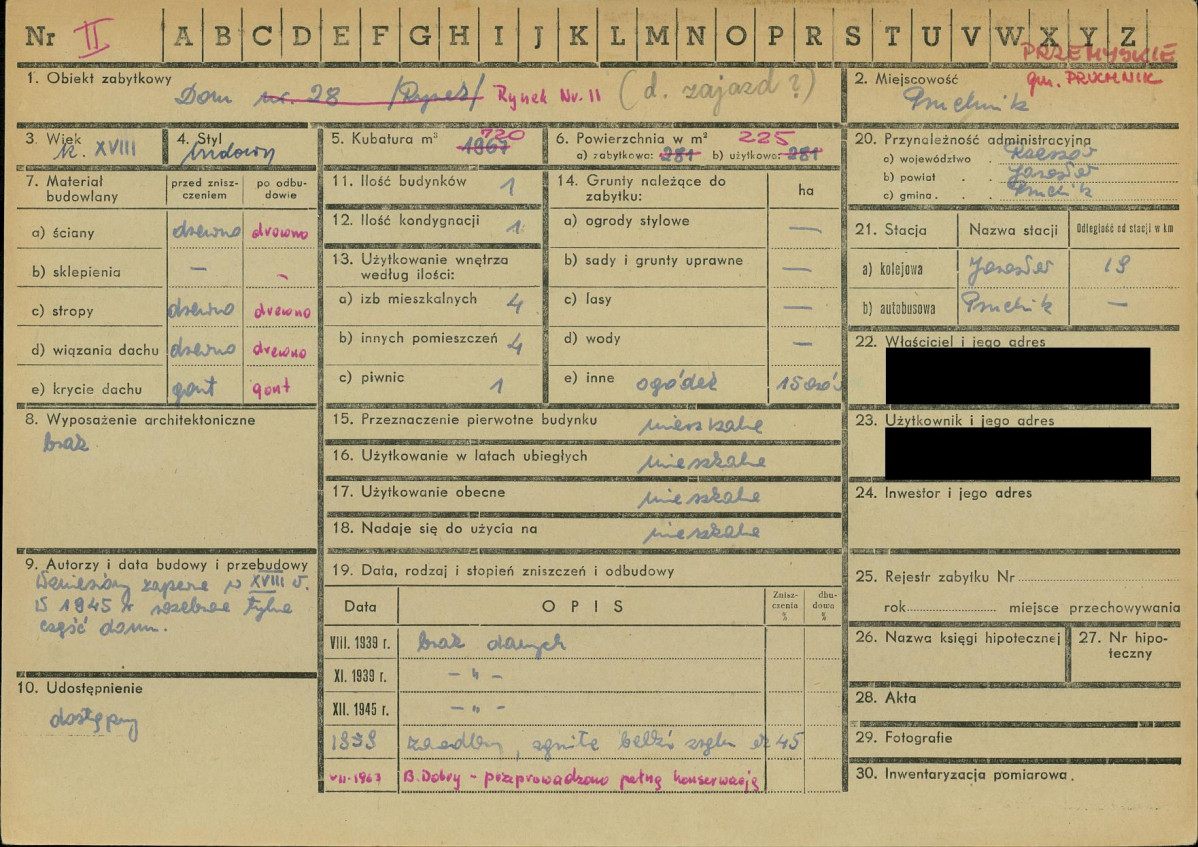 Nr II A B C D E F G H I J K L M N O P R S T U V W X Y Z
PRZEMYSKIE
gm. PRUCHNIK
1. Obiekt zabytkowy
Dom nr. 28 /Rynek/ Rynek Nr. 11 (d. zajazd?)
2. Miejscowość
Pruchnik
3. Wiek
k. XVIII
4. Styl
ludowy
5. Kubatura m³ 720
1967
6. Powierzchnia w m² 225
a) zabytkowa: 281 b) użytkowa: 281
20. Przynależność administracyjna
a) województwo Rzeszów
b) powiat Jarosław
c) gmina Pruchnik
7. Materiał budowlany
przed zniszczeniem
po odbudowie
a) ściany drewno drewno
b) sklepienia — -
c) stropy drewno drewno
d) wiązania dachu drewno drewno
e) krycie dachu gont gont
11. Ilość budynków 1
12. Ilość kondygnacji 1
13. Użytkowanie wnętrza
według ilości:
a) izb mieszkalnych 4
b) innych pomieszczeń 4
c) piwnic 1
14. Grunty należące do
zabytku:
ha
a) ogrody stylowe —
b) sady i grunty uprawne —
c) lasy —
d) wody —
e) inne ogródek
21. Stacja Nazwa stacji Odległość od stacji w km
a) kolejowa Jarosław 19
b) autobusowa Pruchnik —
22. Właściciel i jego adres
23. Użytkownik i jego adres
24. Inwestor i jego adres
8. Wyposażenie architektoniczne
brak
15. Przeznaczenie pierwotne budynku mieszkalne
16. Użytkowanie w latach ubiegłych mieszkalne
17. Użytkowanie obecne mieszkalne
18. Nadaje się do użycia na mieszkalne
9. Autorzy i data budowy i przebudowy
Wzniesiony zapewne w XVIII w.
W 1945 r rozebrano tylną
część domu.
10. Udostępnienie
dostępny
19. Data, rodzaj i stopień zniszczeń i odbudowy
Data OPIS Zniszczenia % dbudowa %
VIII. 1939 r. brak danych
XI. 1939 r. — " —
XII. 1945 r. — " —
1959 zgniłe belki
VII-1967 B. Dobry - przeprowadzono pełną konserwację
25. Rejestr zabytku Nr
rok miejsce przechowywania
26. Nazwa księgi hipotecznej
27. Nr hipoteczny
28. Akta
29. Fotografie
30. Inwentaryzacja pomiarowa.